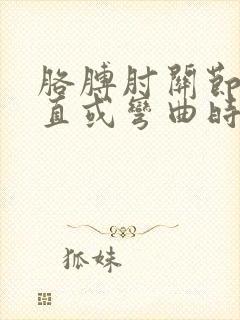 胳膊肘關節
直或彎曲時
狐妹